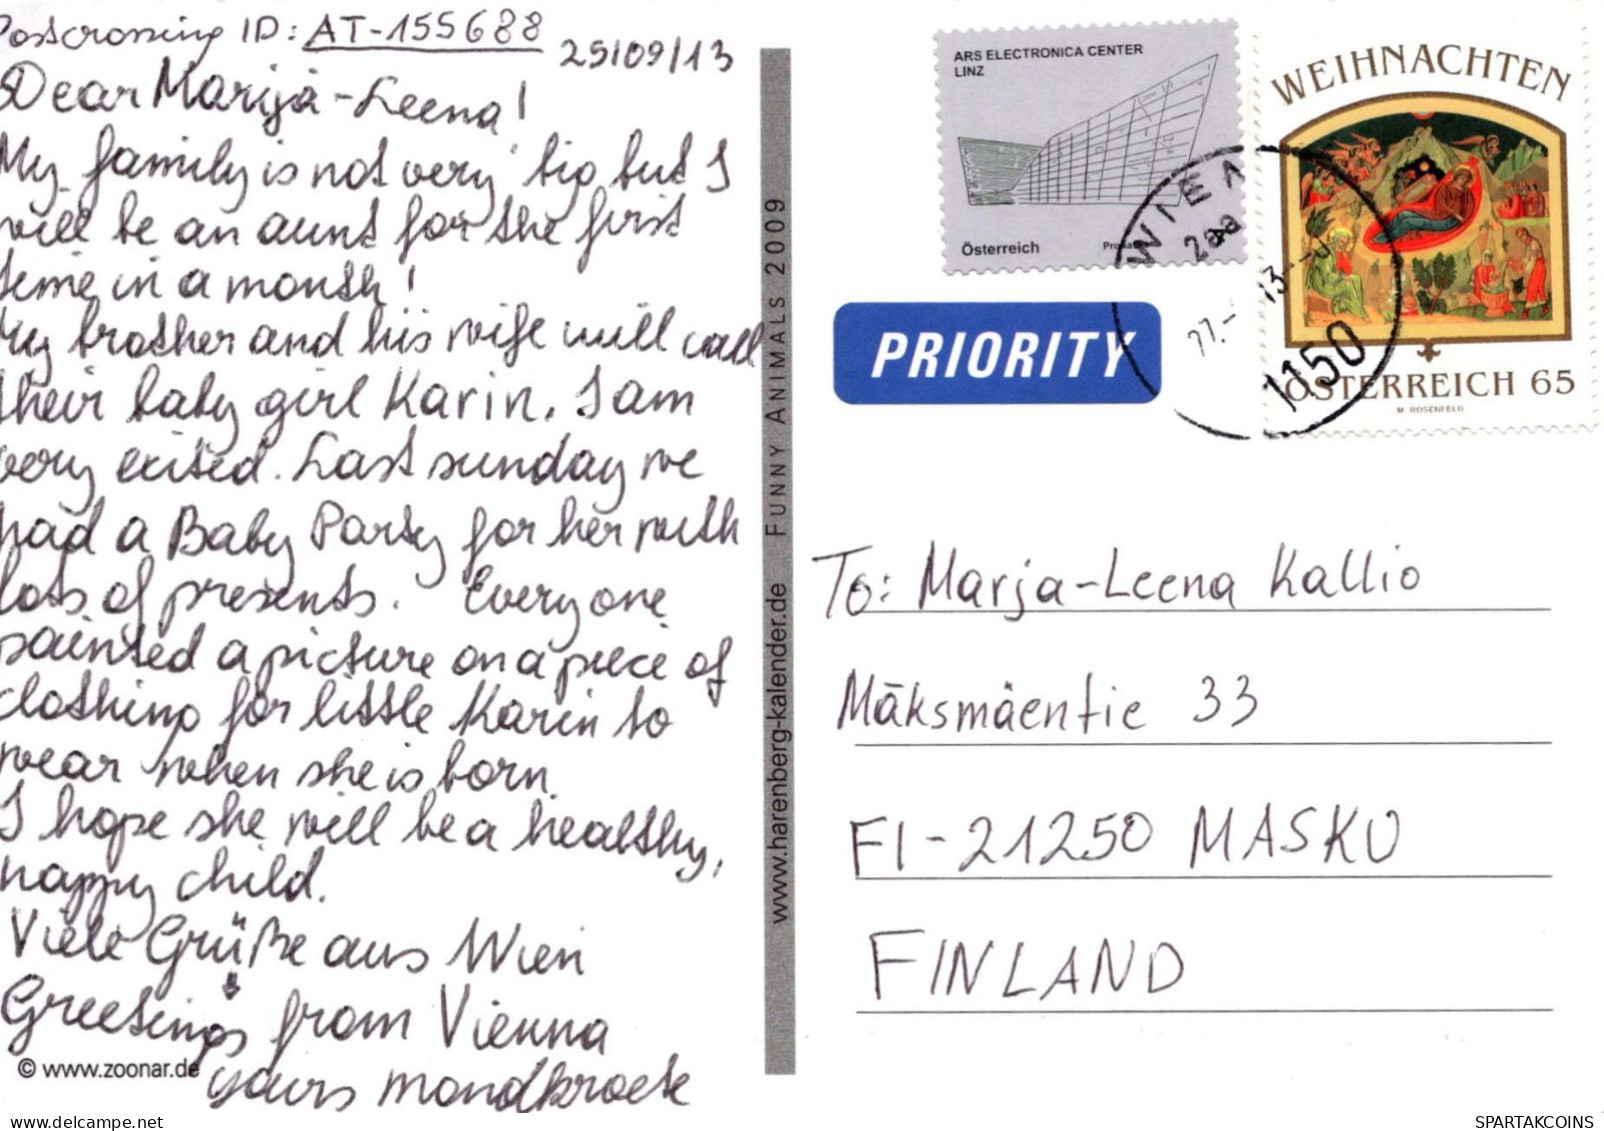 Postcrossing ID: AT-155688
25/09/13
Dear Marija-Leena!
My family is not very big but I
will be an aunt for the first
time in a month!
My brother and his wife will call
their baby girl Karin. I am
very exited. Last sunday we
had a Baby Party for her with
lots of presents. Everyone
painted a picture on a piece of
clothing for little Karin to
wear when she is born.
I hope she will be a healthy,
happy child.
Viele Grüße aus Wien
Greetings from Vienna
yours
© www.zoonar.de
www.harenberg-kalender.de FUNNY ANIMALS 2009
ARS ELECTRONICA CENTER
LINZ
Österreich
WEIHNACHTEN
ÖSTERREICH 65
M. ROSENFELD
WIEN
1150
PRIORITY
To: Marja-Leena Kallio
Mäksmäentie 33
FI-21250 MASKU
FINLAND
SPARTAKCOINS
delcampe.net